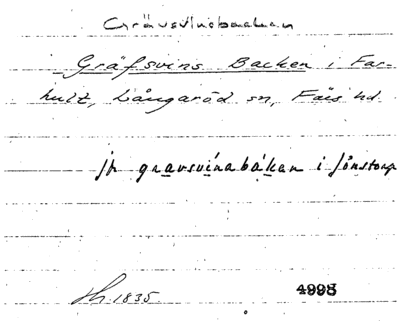 Grävsvinsbacken
Gräfsvins Backen i Far-
hult, Långaröd sn, Färs hd
jfr gravsvinabáken i Jonstorp
1835 4998